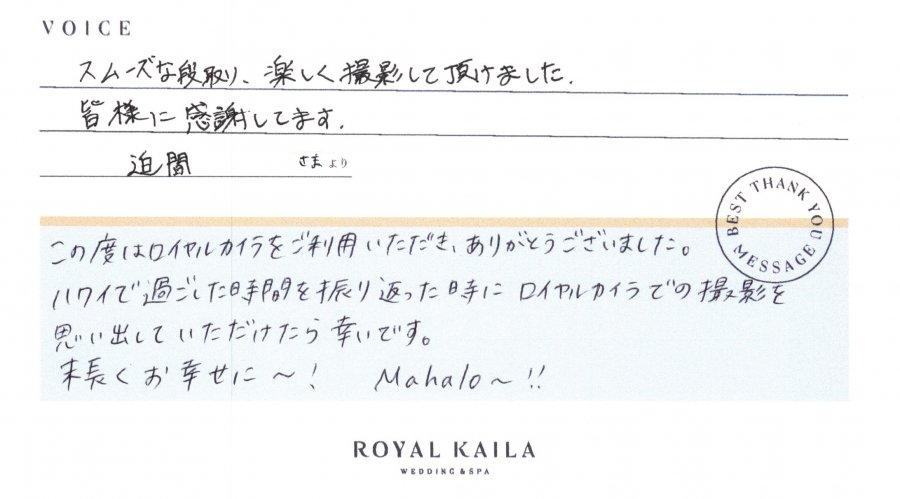 VOICE
スムーズな段取り、楽しく撮影して頂けました.
皆様に感謝してます.
迫間 さまより
BEST THANK YOU MESSAGE
この度はロイヤルカイラをご利用いただき、ありがとうございました。
ハワイで過ごした時間を振り返った時にロイヤルカイラでの撮影を
思い出していただけたら幸いです。
末長くお幸せに〜! Mahalo〜!!
ROYAL KAILA
WEDDING & SPA